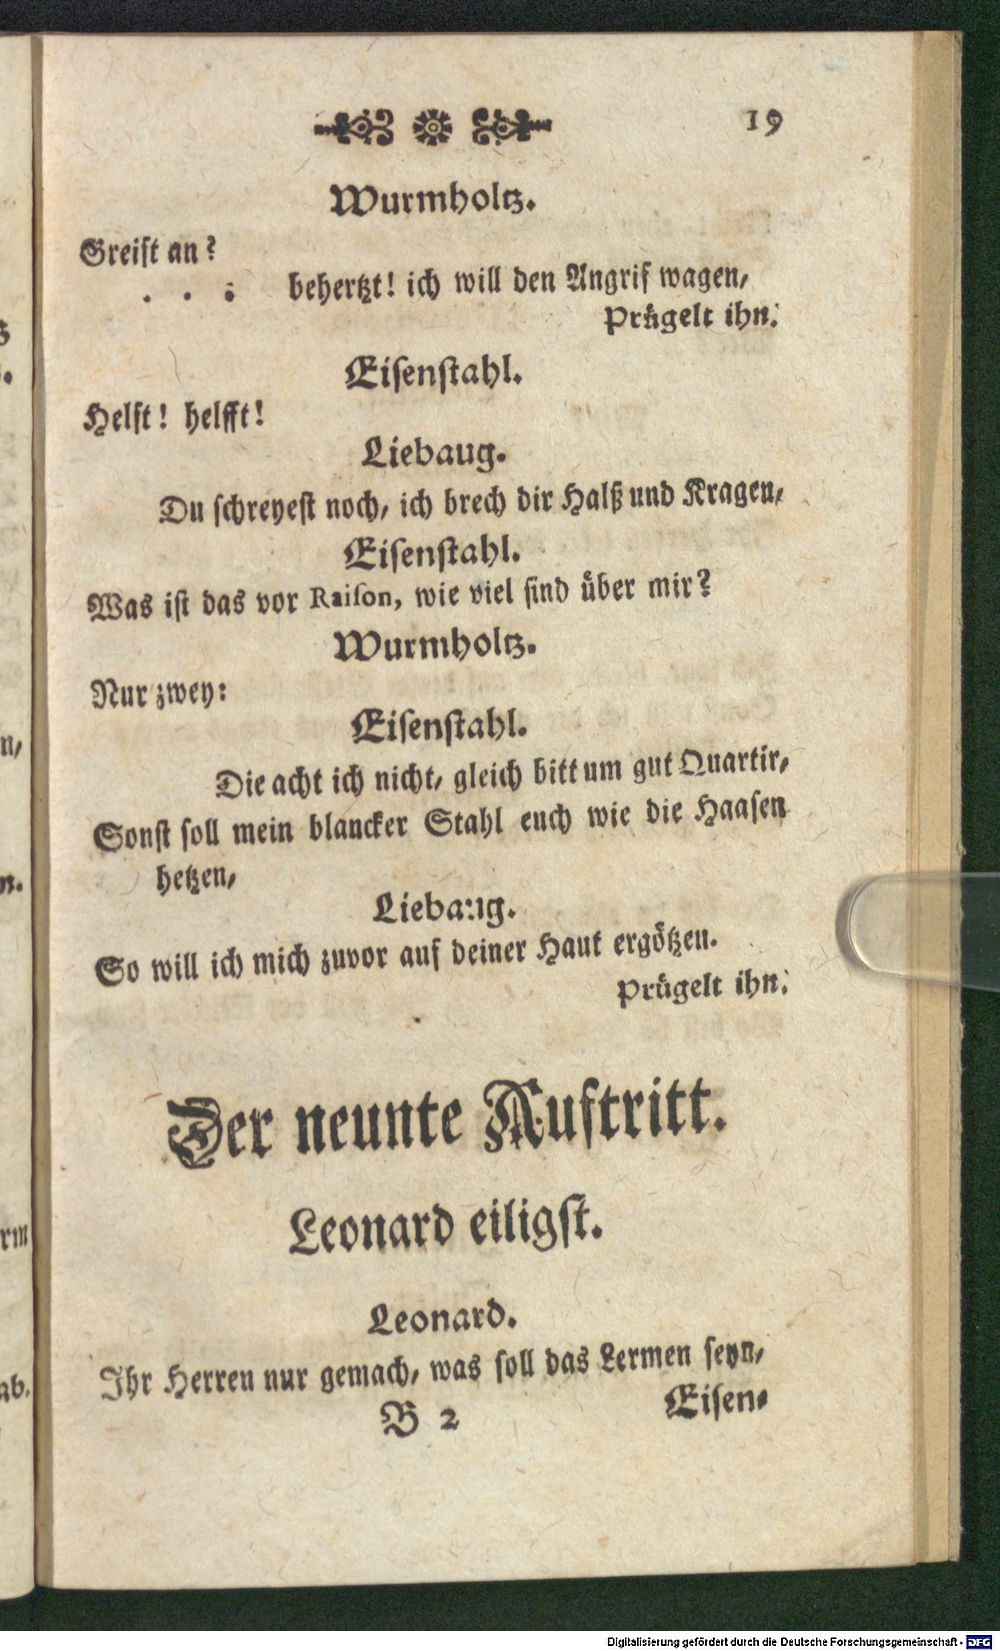 19
Wurmholtz.
Greift an?
. . : behertzt! ich will den Angrif wagen,
Prügelt ihn.
Eisenstahl.
Helft! helfft!
Liebaug.
Du schreyest noch, ich brech dir Halß und Kragen,
Eisenstahl.
Was ist das vor Raison, wie viel sind über mir?
Wurmholtz.
Nur zwey:
Eisenstahl.
Die acht ich nicht, gleich bitt um gut Quartir,
Sonst soll mein blancker Stahl euch wie die Haasen
hetzen,
Liebaug.
So will ich mich zuvor auf deiner Haut ergötzen.
Prügelt ihn.
Der neunte Auftritt.
Leonard eiligst.
Leonard.
Ihr Herren nur gemach, was soll das Lermen seyn,
B 2 Eisen-
Digitalisierung gefördert durch die Deutsche Forschungsgemeinschaft - DFG